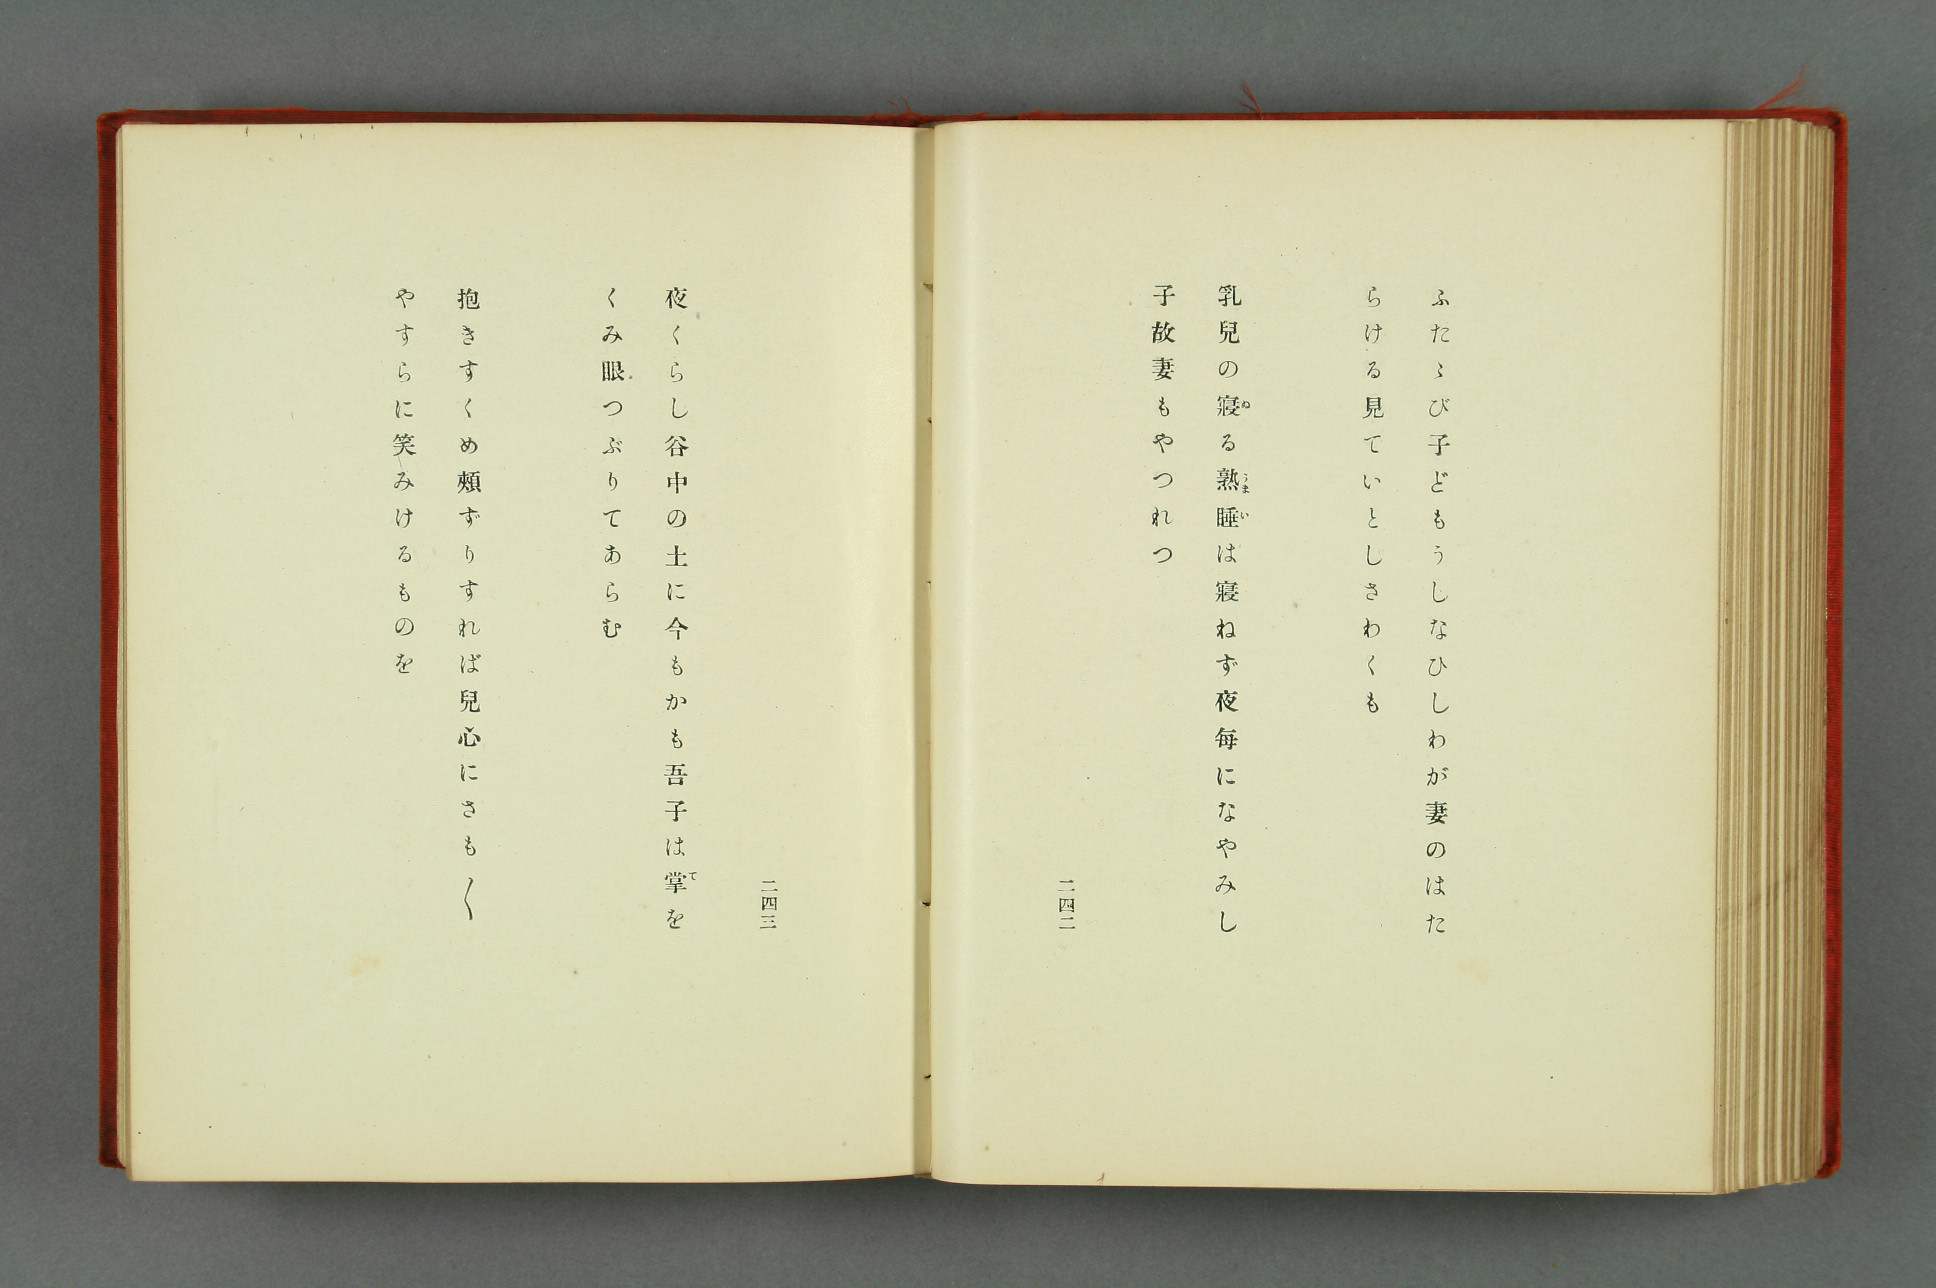 ふたゝび子どもうしなひしわが妻のはた
らける見ていとしさわくも
乳兒の寢る熟睡は寢ねず夜毎になやみし
子故妻もやつれつ
二四二
夜くらし谷中の土に今もかも吾子は掌を
くみ眼つぶりてあらむ
抱きすくめ頰ずりすれば兒心にさも〱
やすらに笑みけるものを
二四三